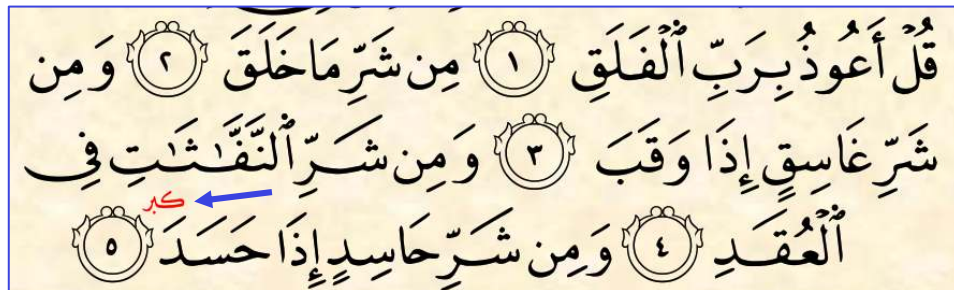 قُلۡ أَعُوذُ بِرَبِّ ٱلۡفَلَقِ ١ مِن شَرِّ مَا خَلَقَ ٢ وَمِن
شَرِّ غَاسِقٍ إِذَا وَقَبَ ٣ وَمِن شَرِّ ٱلنَّفَّٰثَٰتِ فِي
كبر
ٱلۡعُقَدِ ٤ وَمِن شَرِّ حَاسِدٍ إِذَا حَسَدَ ٥